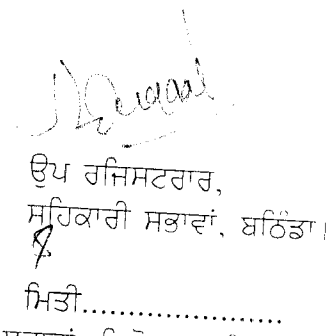 ਉਪ ਰਜਿਸਟਰਾਰ,
ਸਹਿਕਾਰੀ ਸਭਾਵਾਂ, ਬਠਿੰਡਾ।
ਮਿਤੀ.....................